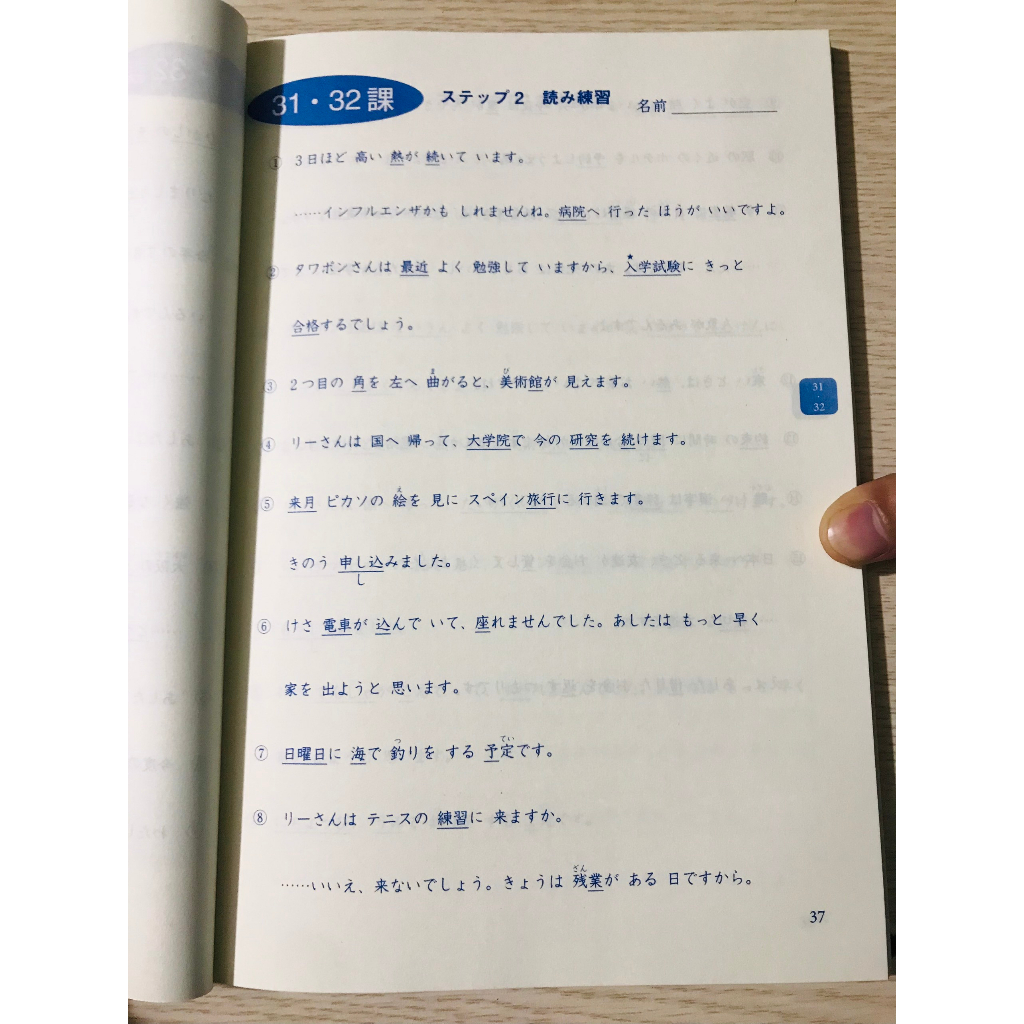 31・32課 ステップ2 読み練習 名前
① 3日ほど 高い 熱が 続いて います。
……インフルエンザかも しれませんね。病院へ 行った ほうが いいですよ。
② タワポンさんは 最近 よく 勉強して いますから、入学試験に きっと
★
合格するでしょう。
③ 2つ目の 角を 左へ 曲がると、美術館が 見えます。
ま び
④ リーさんは 国へ 帰って、大学院で 今の 研究を 続けます。
⑤ 来月 ピカソの 絵を 見に スペイン旅行に 行きます。
え
きのう 申し込みました。
し
⑥ けさ 電車が 込んで いて、座れませんでした。あしたは もっと 早く
家を 出ようと 思います。
⑦ 日曜日に 海で 釣りを する 予定です。
つ てい
⑧ リーさんは テニスの 練習に 来ますか。
……いいえ、来ないでしょう。きょうは 残業が ある 日ですから。
ざん
31
・
32
37